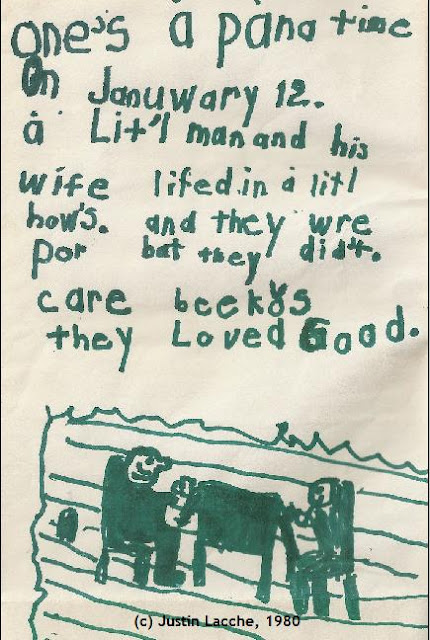 one's a pana time
On Januwary 12.
a Lit'l man and his
wife lifed.in a litl
how's. and they wre
por but they did't.
care beekos
they Loved Good.
(c) Justin Lacche, 1980